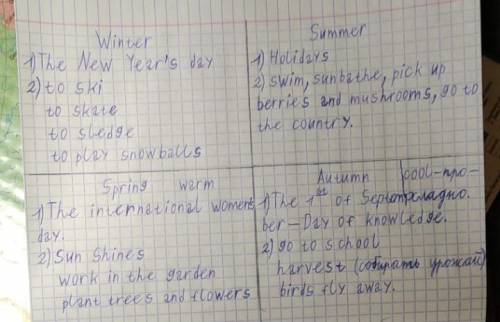 Winter
1) The New Year's day
2) to ski
to skate
to sledge
to play snowballs
Summer
1) Holidays
2) swim, sunbathe, pick up
berries and mushrooms, go to
the country.
Spring warm
1) The international women's
day.
2) Sun shines
work in the garden
plant trees and flowers
Autumn cool-про-
1) The 1st of Septem прохладно.
ber-Day of knowledge.
2) go to school
harvest (собирать урожай)
birds fly away.